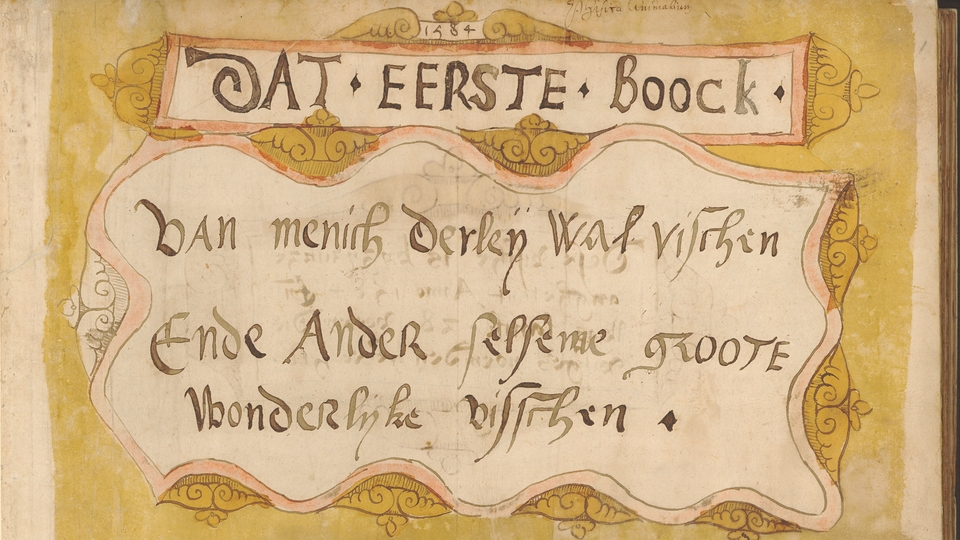 1584
DAT · EERSTE · Boock ·
VAN menich Derleÿ Wal vischen
Ende ANDER selseme gROOTE
WonderlyKe visschen ·